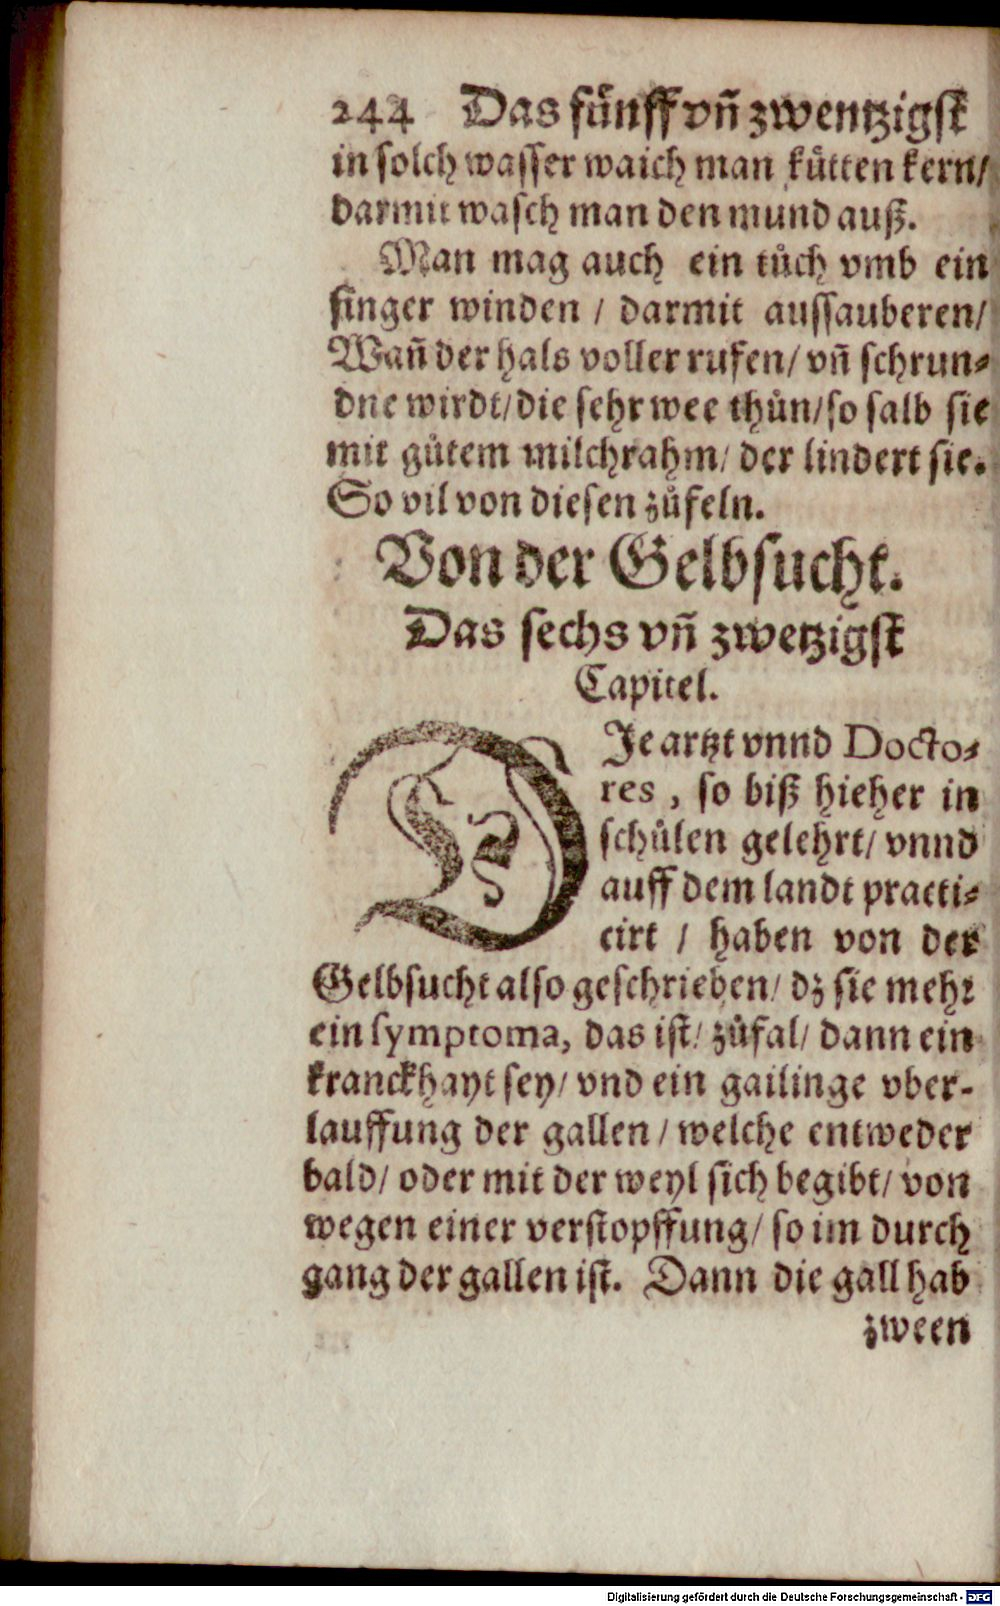 244 Das fünff vñ zwentzigst
in solch wasser waich man kütten kern/
darmit wasch man den mund auß.
Man mag auch ein tůch vmb ein
finger winden / darmit aussauberen/
Wañ der hals voller rufen/ vñ schrun⸗
dne wirdt/ die sehr wee thůn/ so salb sie
mit gůtem milchrahm/ der lindert sie.
So vil von diesen zůfeln.
Von der Gelbsucht.
Das sechs vñ zwetzigst
Capitel.
DJe artzt vnnd Docto⸗
res , so biß hieher in
schůlen gelehrt/ vnnd
auff dem landt practi⸗
cirt / haben von der
Gelbsucht also geschrieben/ dz sie mehr
ein symptoma, das ist/ zůfal/ dann ein
kranckhayt sey/ vnd ein gailinge vber-
lauffung der gallen / welche entweder
bald/ oder mit der weyl sich begibt/ von
wegen einer verstopffung/ so im durch
gang der gallen ist. Dann die gall hab
zween
Digitalisierung gefördert durch die Deutsche Forschungsgemeinschaft - DFG